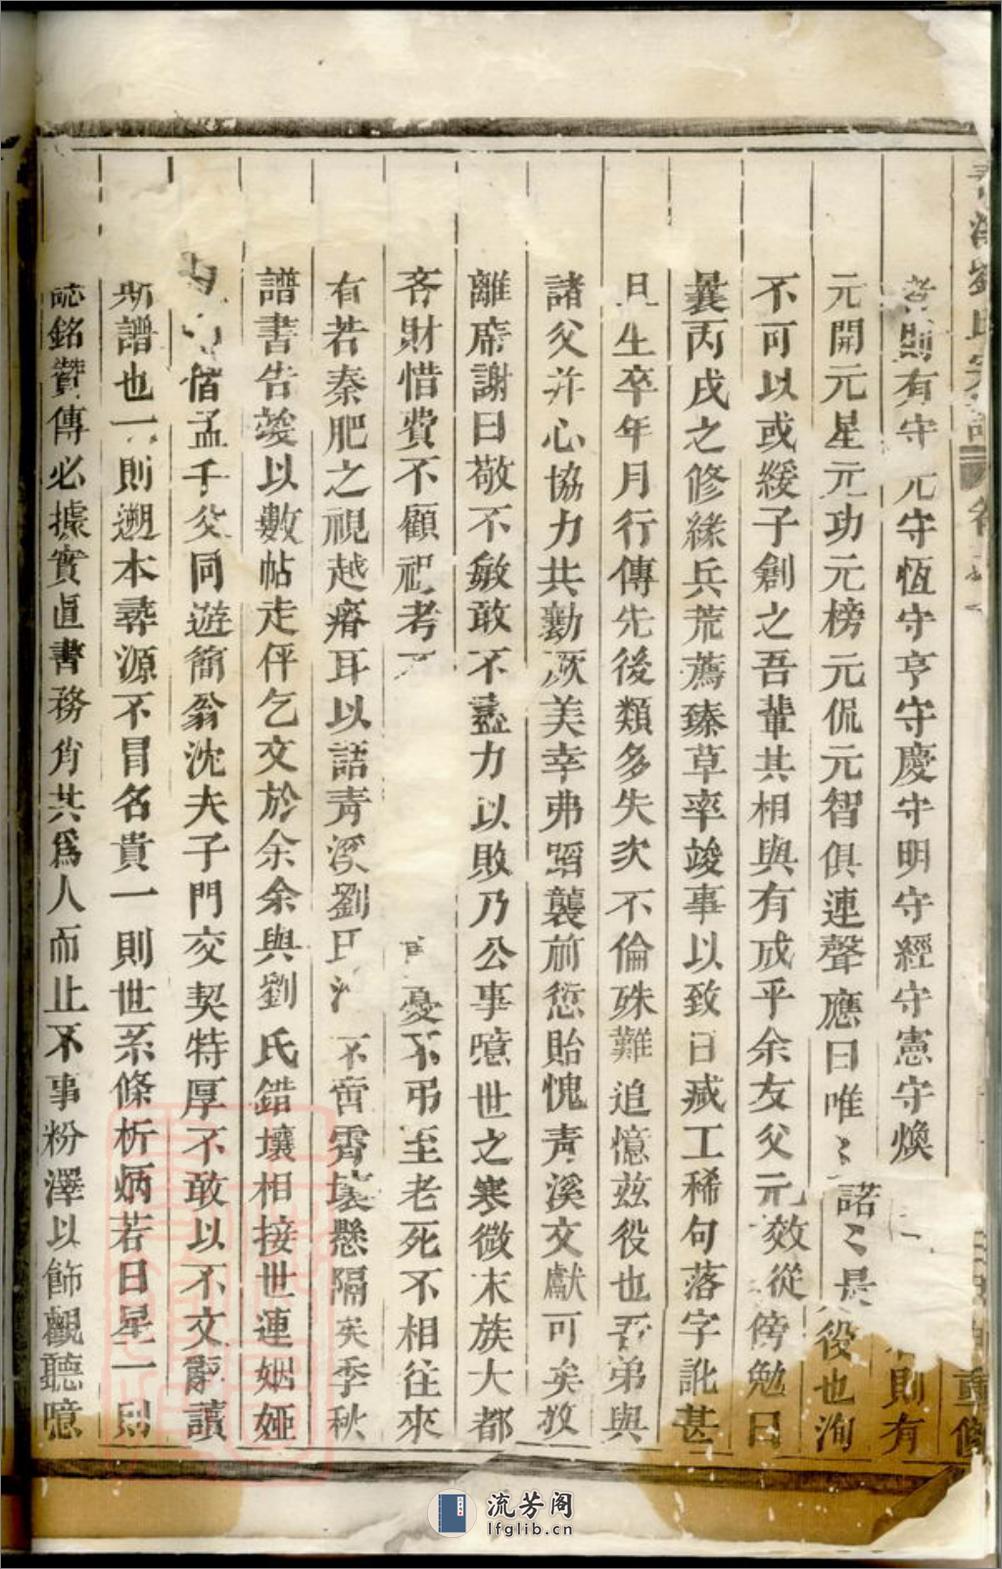 則有守元守恆守亨守慶守明守經守憲守煥則有
元開元星元功元榜元侃元智俱連聲應曰唯〻諾〻是役也洵
不可以或緩子創之吾輩其相與有成乎余友父元效從傍勉曰
曩丙戌之修緣兵荒薦臻草率竣事以致日藏工稀句落字訛甚
且生卒年月行傳先後類多失次不倫殊難追憶茲役也吾弟與
諸父并心協力共勷厥美幸弗蹈襲前愆貽愧青溪文獻可矣敎
離席謝曰敬不敏敢不盡力以敗乃公事噫世之寒微末族大都
吝財惜費不顧祖考憂不弔至老死不相往來
有若秦肥之視越瘠耳以語青溪劉氏不啻霄壤懸隔矣季秋
譜書告竣以數帖走伻乞文於余余與劉氏錯壤相接世連姻婭
偕孟千父同遊簡翁沈夫子門交契特厚不敢以不文辭讀
斯譜也一則遡本尋源不冒名貴一則世系條析炳若日星一則
誌銘贊傳必據實直書務肖其為人而止不事粉澤以飾觀聽噫
重修
流芳阁
lfglib.cn